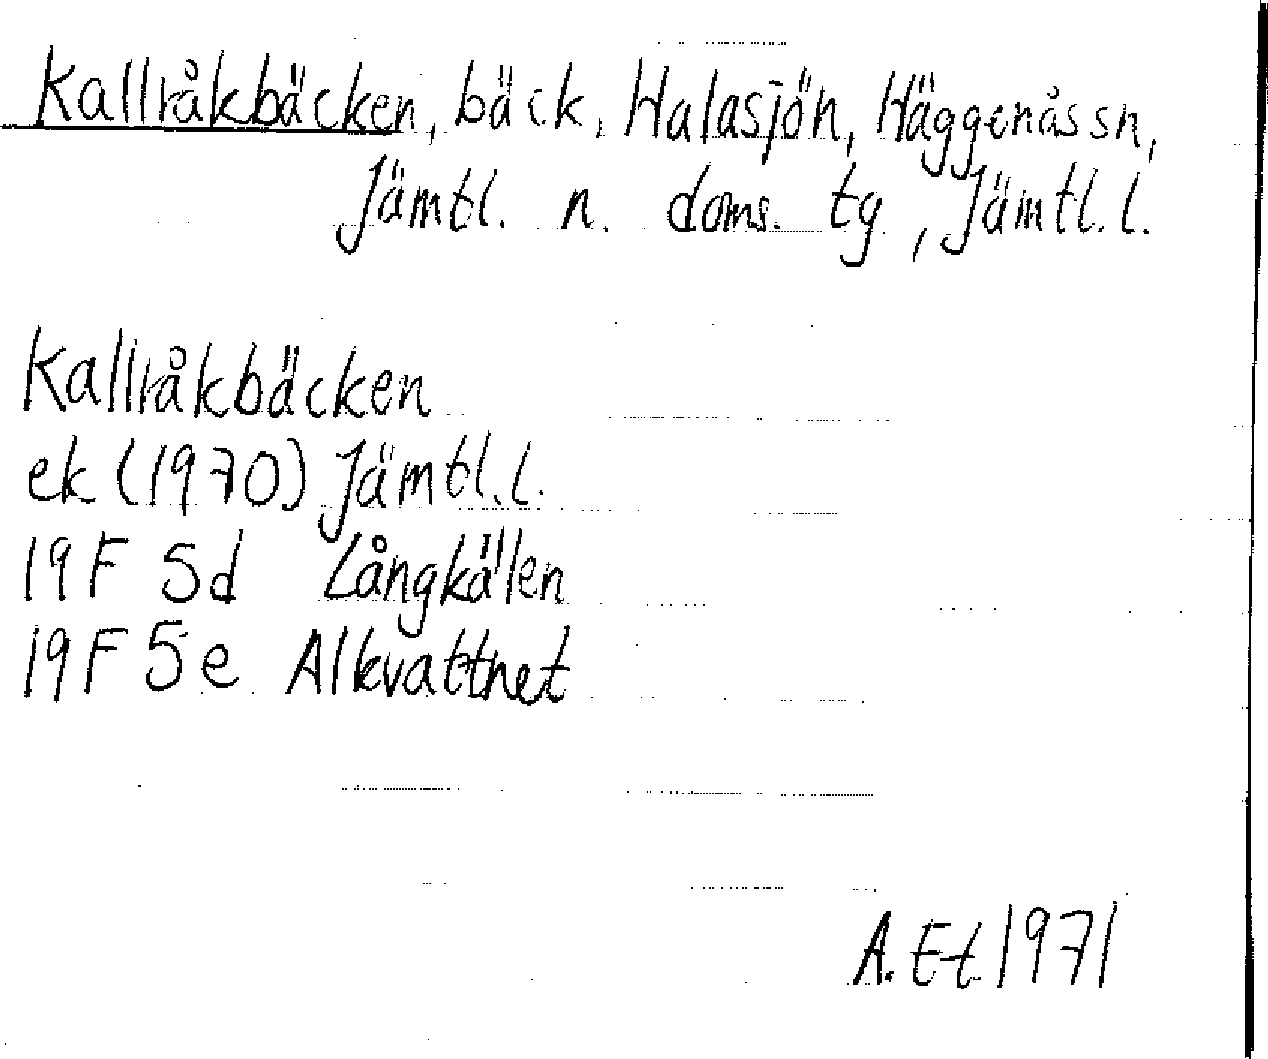 Kallråkbäcken, bäck, Halasjön, Häggenås sn,
Jämtl. n. doms. tg, Jämtl. l.
Kallråkbäcken
ek (1970) Jämtl. l.
19F 5d Långkälen
19F 5e Alkvattnet
A. Et 1971